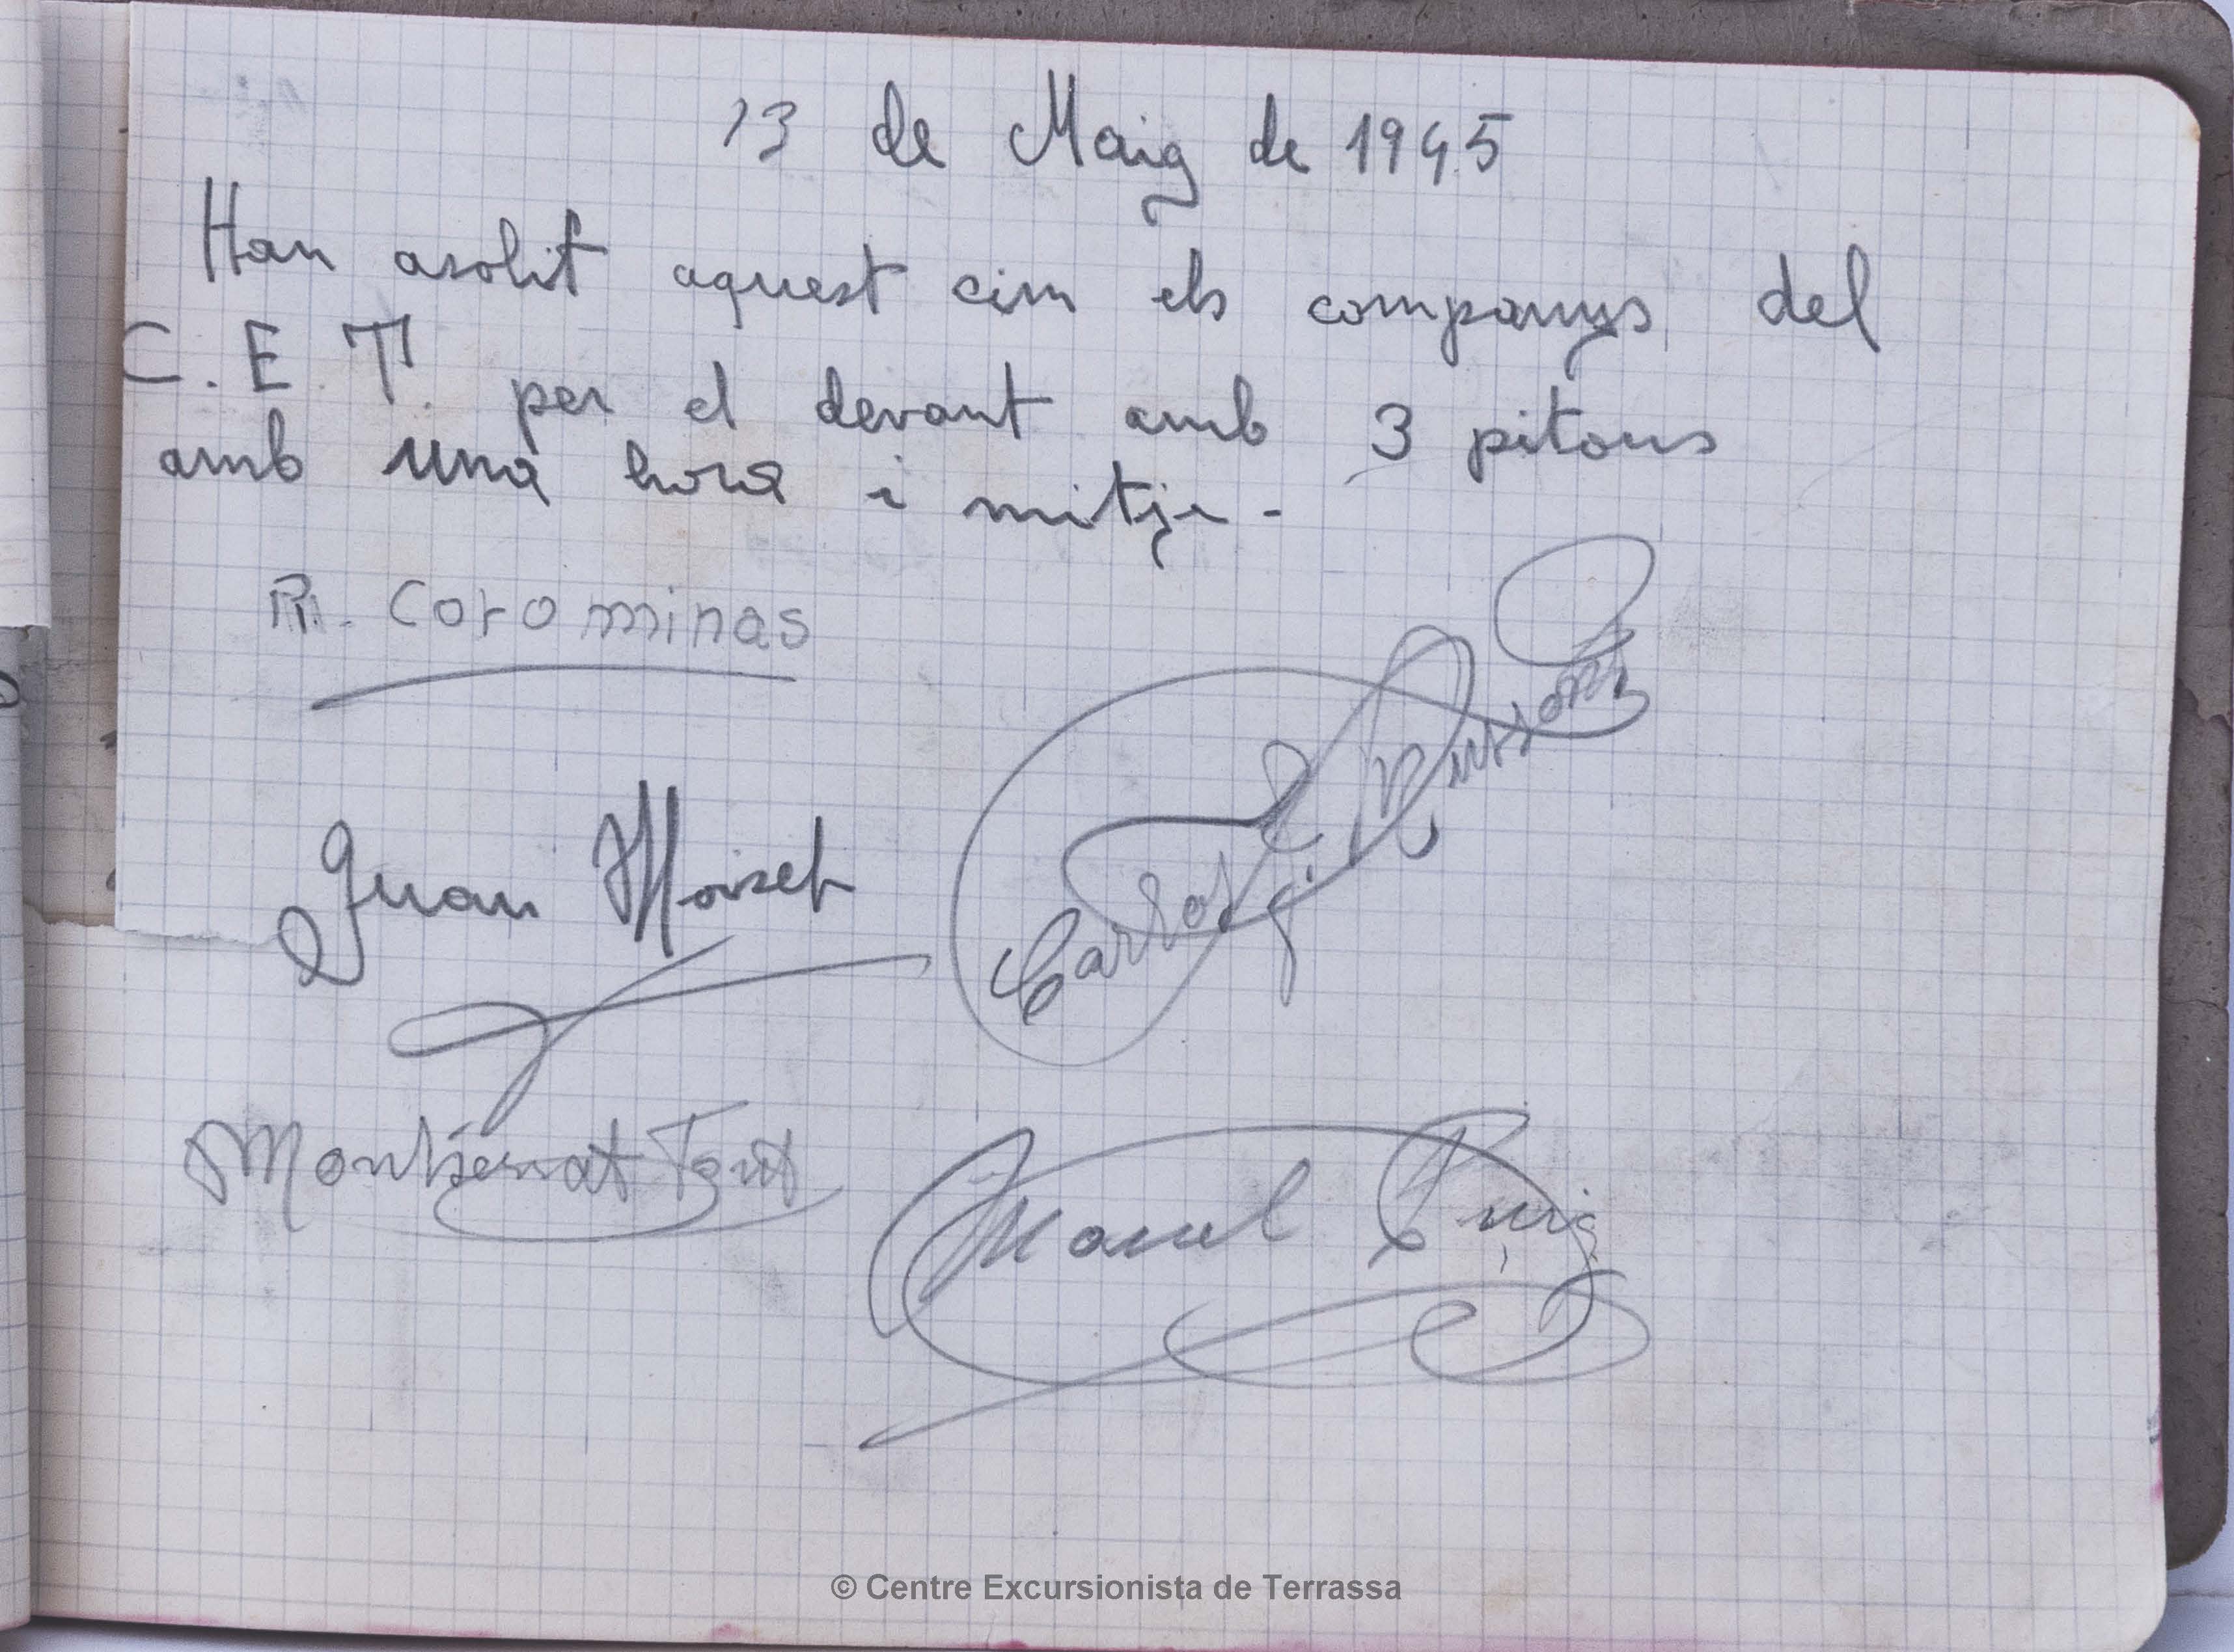 13 de Maig de 1945
Han asolit aquest cim els companys del
C. E. T. per el devant amb 3 pitons
amb una hora i mitje -
Corominas
Juan
Montserrat
Manel Puig
© Centre Excursionista de Terrassa